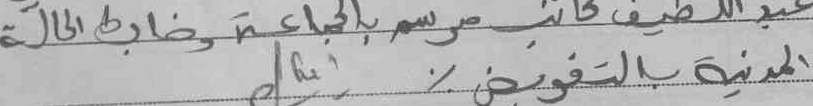 عبد اللطيف كاتب مرسم بالجماعة وضابط الحالة
المدنية بالتفويض ٪